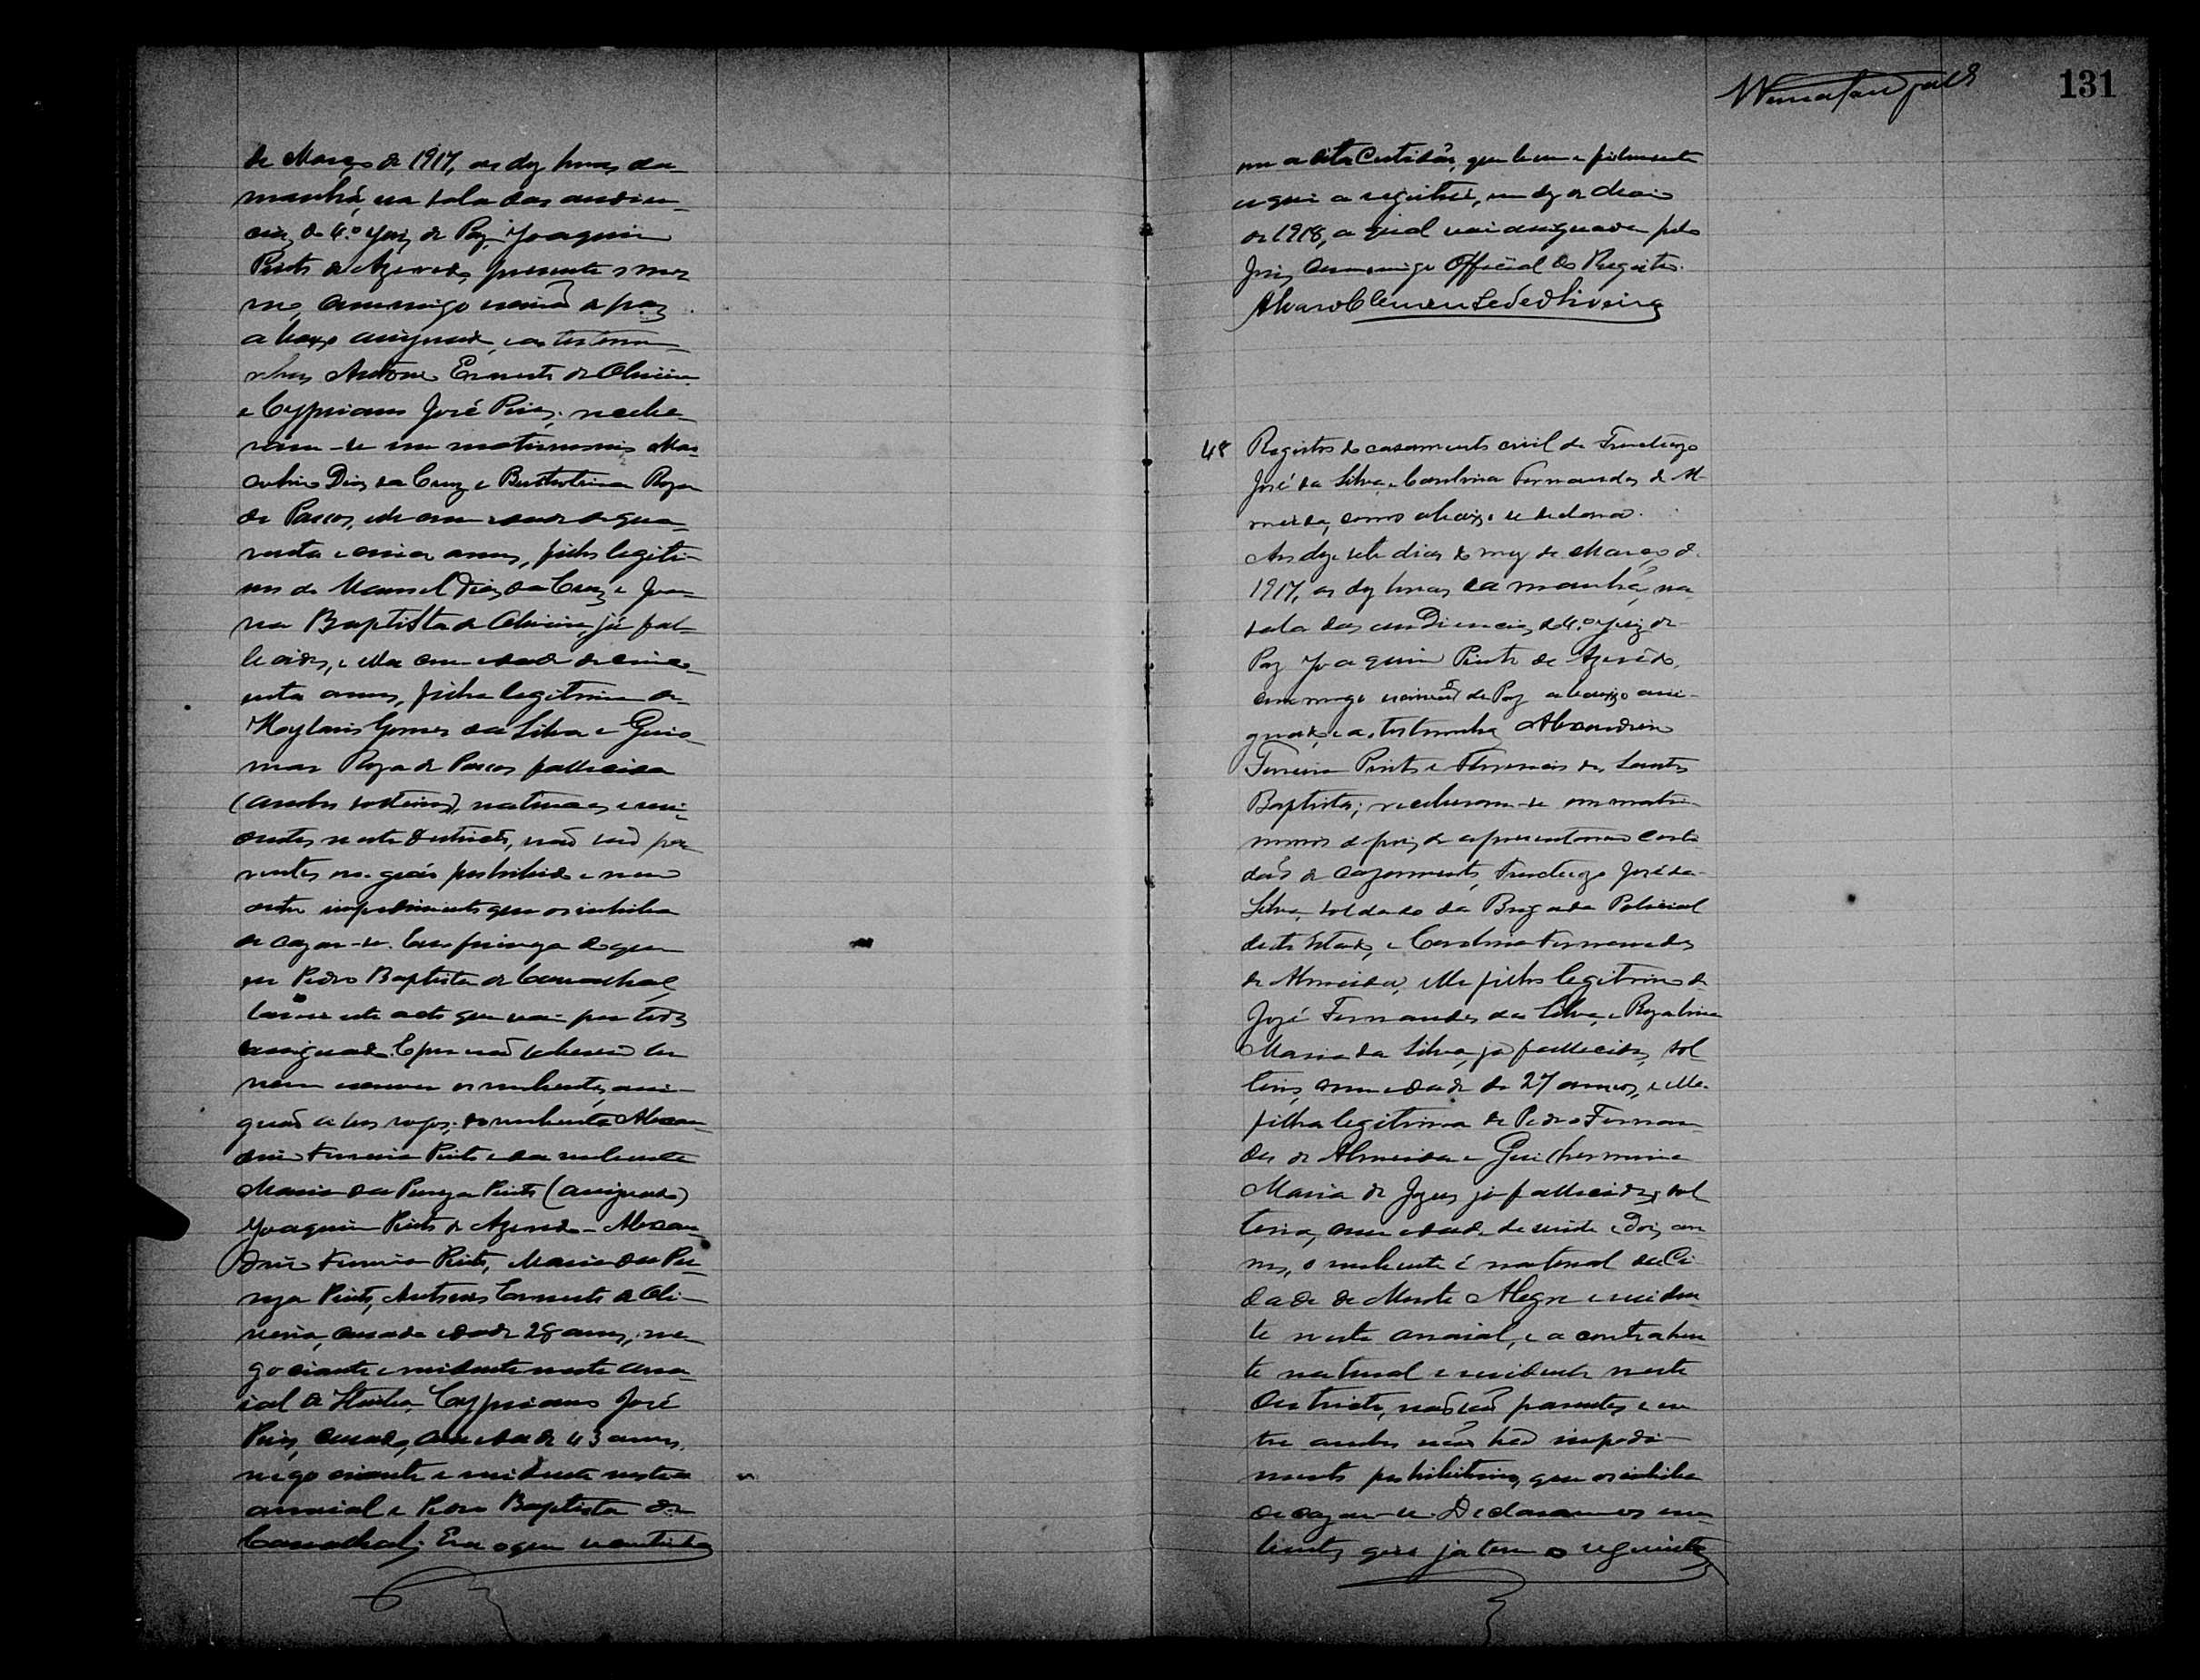 de Março de 1917, as dez horas da
manhã, na sala das audien-
cias do 4.º Juiz de Paz Joaquim
Pinto de Azevedo, presente o mes
mo, commigo escrivão de paz
abaixo assignado, e as testemu-
nhas Antonio Ernesto de Oliveira
e Cypriano José Pires, recebe-
ram-se em matrimonio
Dias da Cruz e Roza
de Passos, elle com idade de qua-
renta e cinco annos, filho legiti-
mo de Manoel Dias da Cruz e Joan-
na Baptista de Oliveira, já fal-
lecidos, e ella com idade de cinco-
enta annos, filha legitima de
Gomes da Silva e Guio-
mar Roza de Passos fallecida
(ambos solteiros), naturaes e resi-
dentes neste districto, não são pa-
rentes no gráo prohibido e nem
outro impedimento que os inhiba
de cazar-se. Em firmeza do que
eu Pedro Baptista de Carvalhal,
lavrei este acto que vai por todos
assignado. E por não saberem ler
nem escrever os nubentes, assi-
gnão a seos rogos, do nubente Alexan-
dre Ferreira Pinto e da nubente
Maria da Pureza Pinto (assignados)
Joaquim Pinto de Azevedo - Alexan-
dre Ferreira Pinto, Maria da Pu-
reza Pinto, Antonio Ernesto de Oli-
veira, cazado idade 28 annos, ne-
gociante e residente neste arra-
ial de Cypriano José
Pires, cazado, com idade 43 annos,
negociante e residente neste
arraial e Pedro Baptista de
Carvalhal. Era o que continha
131
em a dita Certidão, que bem e fielmente
aqui a registrei, em dez de Maio
de 1918, a qual vai assignada pelo
Juiz, commigo Official do Registro.
Alvaro Clemente de Oliveira
48 Registro do casamento civil de Fructuozo
José da Silva e Carolina Fernandes de Al-
meida, como abaixo se declara.
Aos dezesete dias do mez de Março de
1917, as dez horas da manhã, na
sala das audiencias do 4.º Juiz de
Paz Joaquim Pinto de Azevêdo,
commigo escrivão de Paz abaixo assi-
gnado, e as testemunhas Alexandre
Ferreira Pinto e Florencio dos Santos
Baptista; receberam-se em matri-
monio depois de apresentarem certi
dão de cazamento, Fructuozo José da
Silva, soldado da Brigada Policial
deste Estado, e Carolina Fernandes
de Almeida, elle filho legitimo de
José Fernandes da Silva, e Rozalina
Maria da Silva, já fallecidos, sol
teiro, com idade de 27 annos, e ella
filha legitima de Pedro Fernan
des de Almeida e Guilhermina
Maria de Jezus já fallecidos, sol
teira, com idade de vinte e dois an
nos, o nubente é natural da Ci
dade de Monte Alegre e residen
te neste arraial, e a contrahen
te natural e residente neste
districto, não são parentes, e en
tre ambos não há impedi
mento prohibitivo, que os inhiba
de cazar-se. Declararam os nu
bentes, que ja tem o seguinte